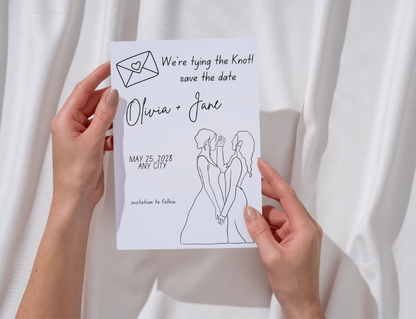 We're tying the Knot!
save the date
Olivia + Jane
MAY 25, 2028
ANY CITY
invitation to follow